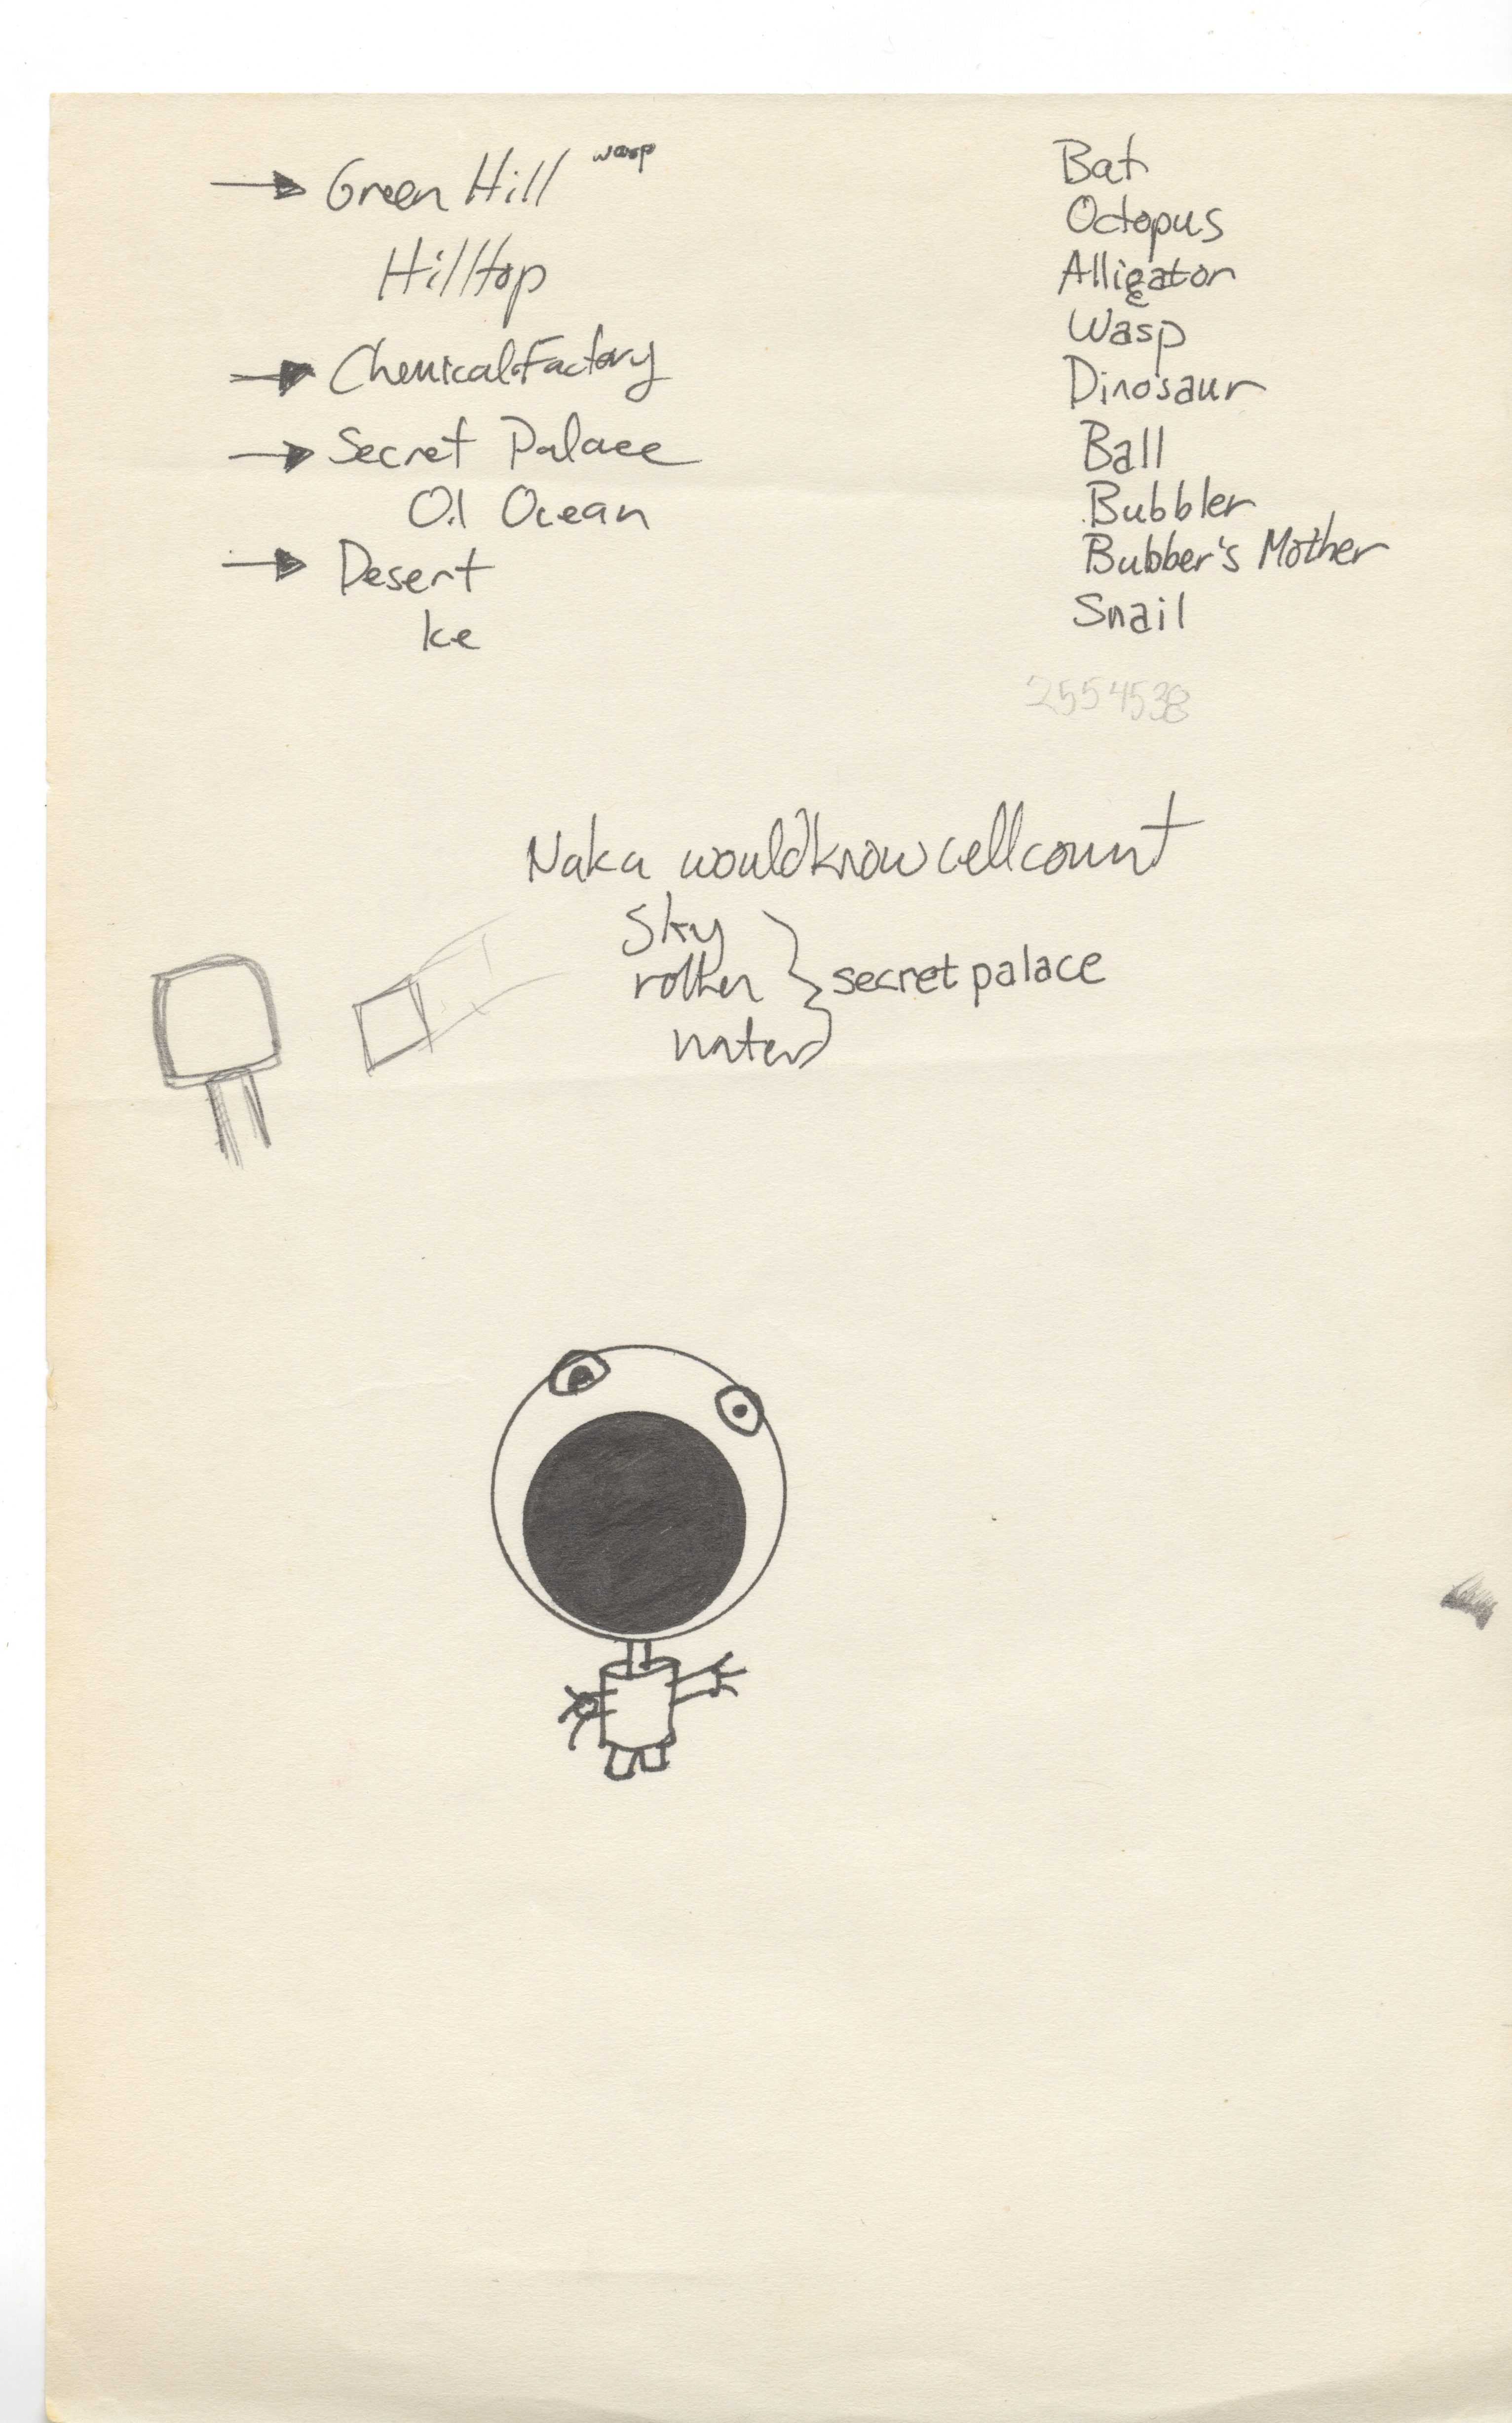 Green Hill wasp
Hilltop
Chemical Factory
Secret Palace
Oil Ocean
Desert
Ice
Bat
Octopus
Alligator
Wasp
Dinosaur
Ball
Bubbler
Bubber's Mother
Snail
2554538
Naka would know cell count
Sky
secret palace
water